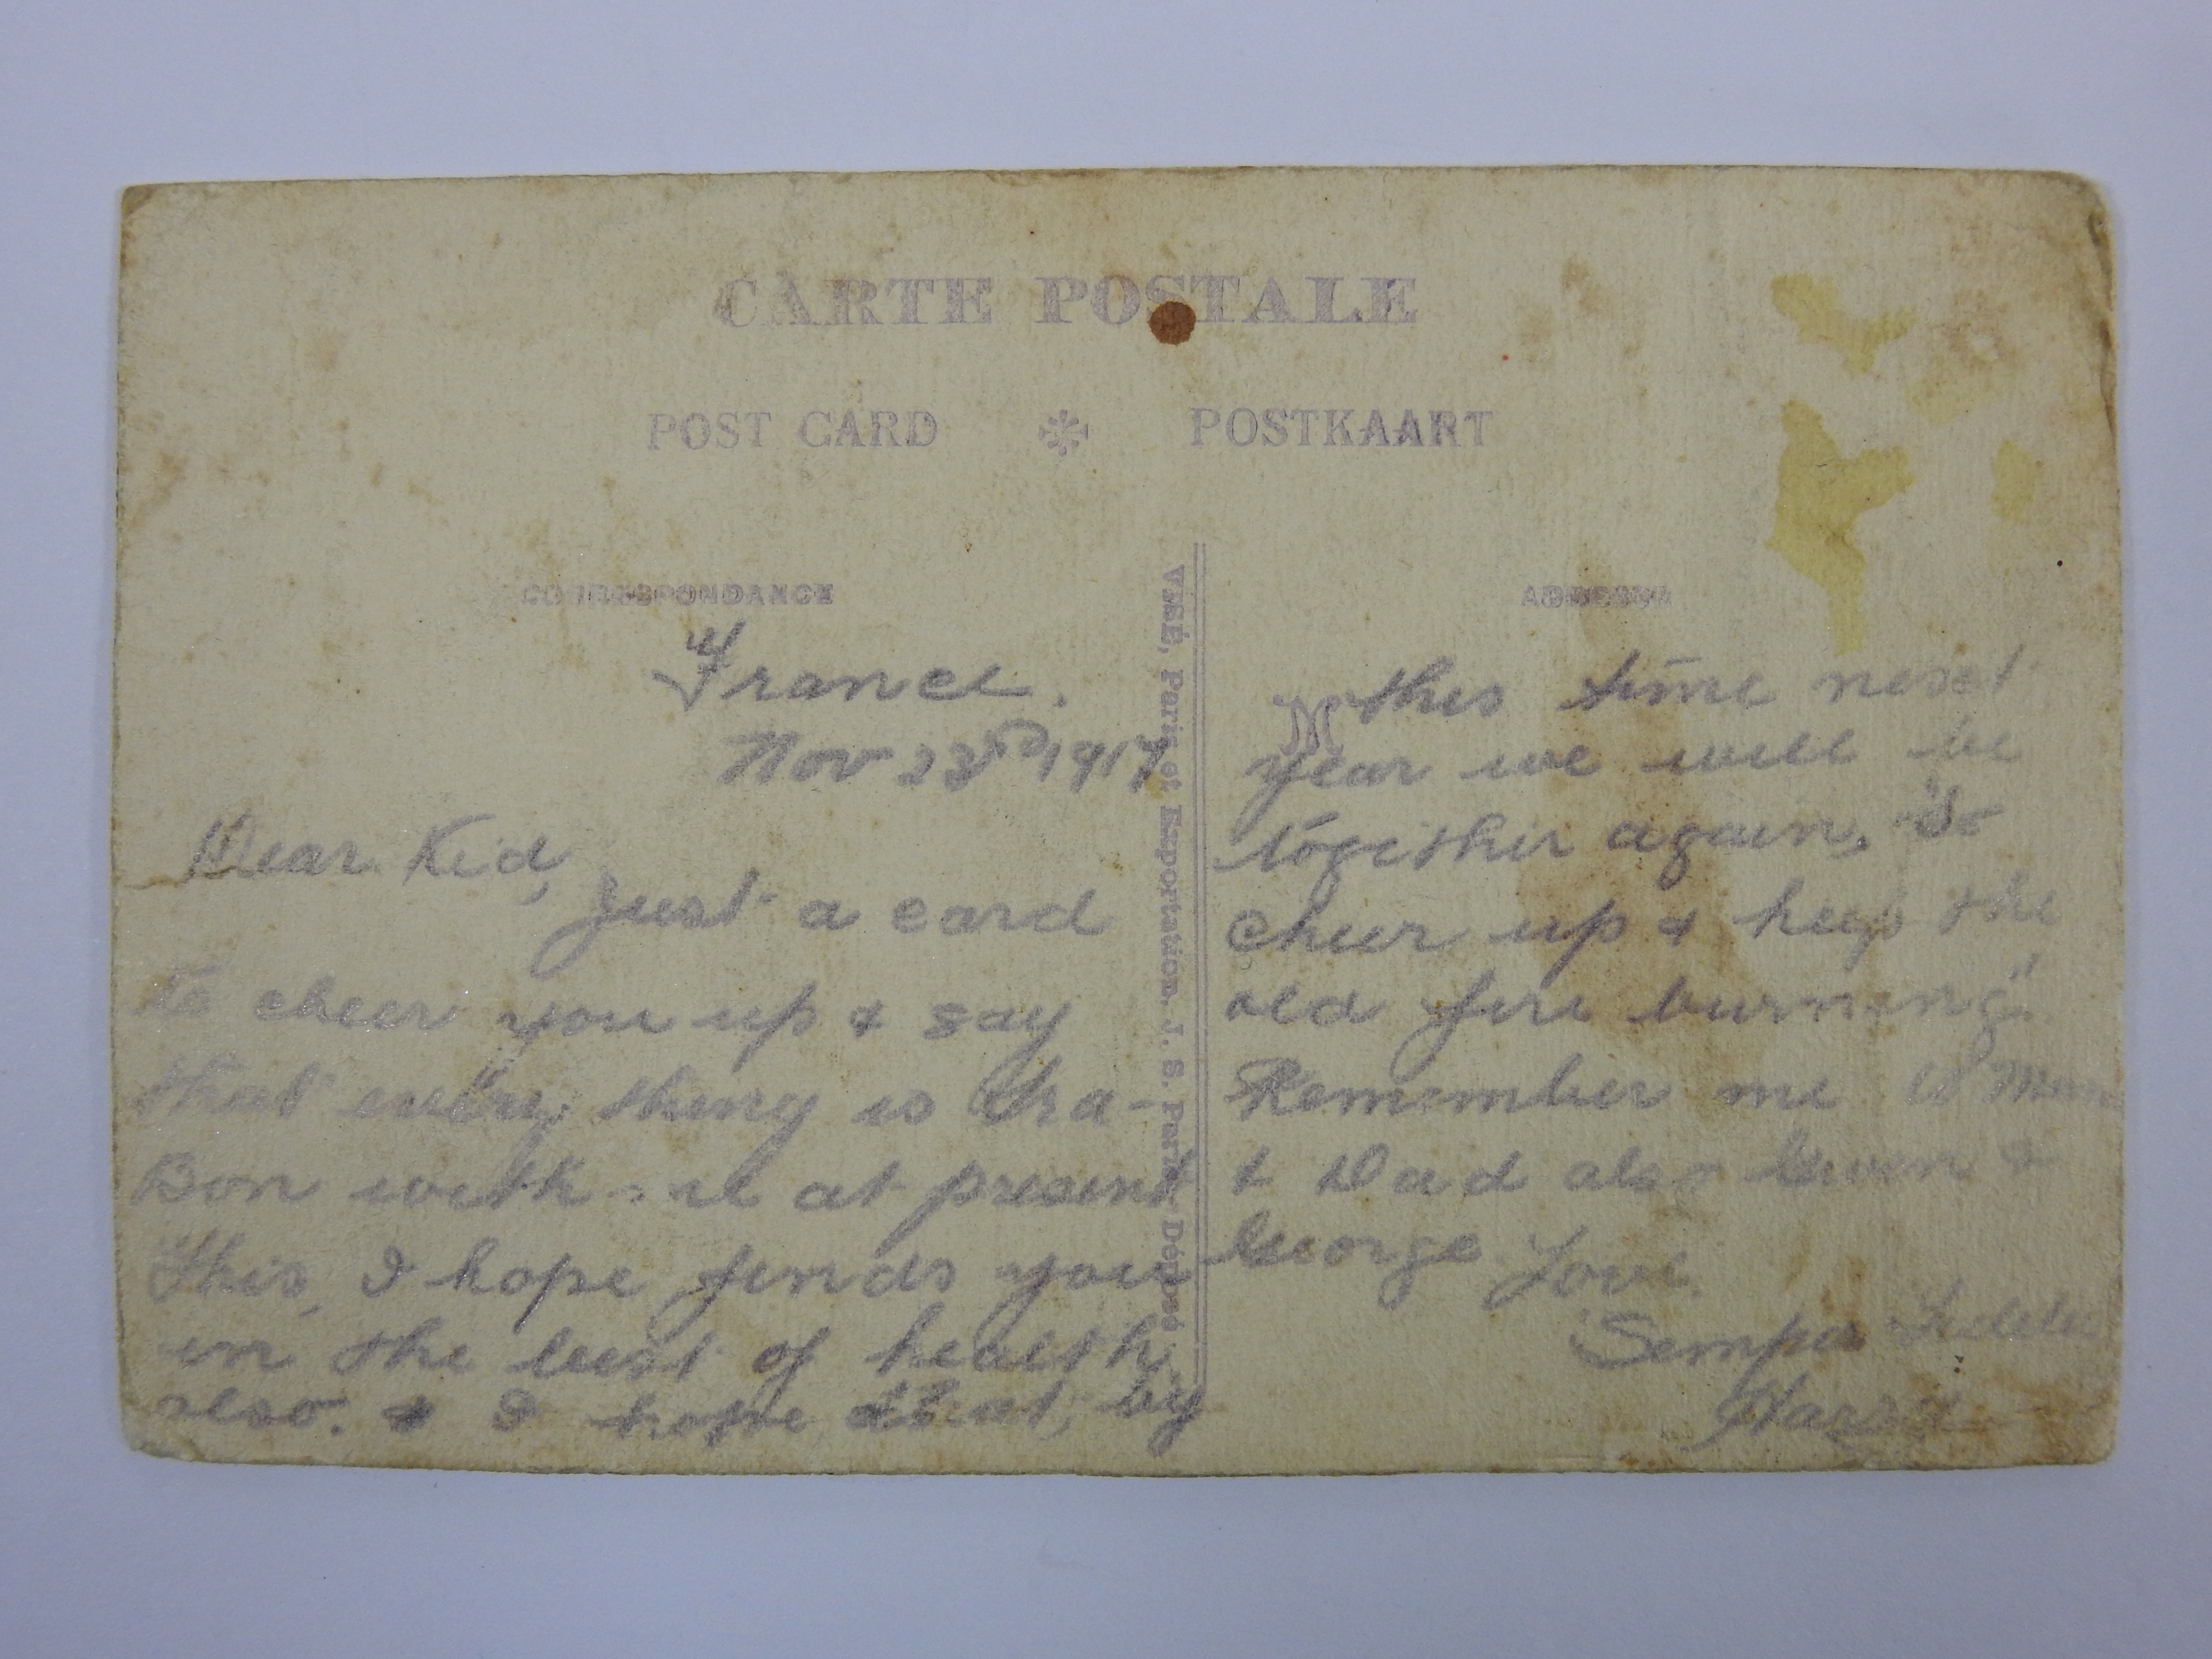 CARTE POSTALE
POST CARD POSTKAART
CORRESPONDANCE
France.
Nov 23rd 1917
Dear Kid,
Just a card
to cheer you up & say
that every thing is tra-
Bon with at present
This, I hope finds you
in the best of health
also. & I hope that, by
VISÉ, Paris et Exportation. J. S. Paris Déposé
this time next
year we will be
together again, So
cheer up & keep the
old fire burning".
Remember me to Mum
& Dad also Gwen &
George Love.
Semper Fidelis
Harry